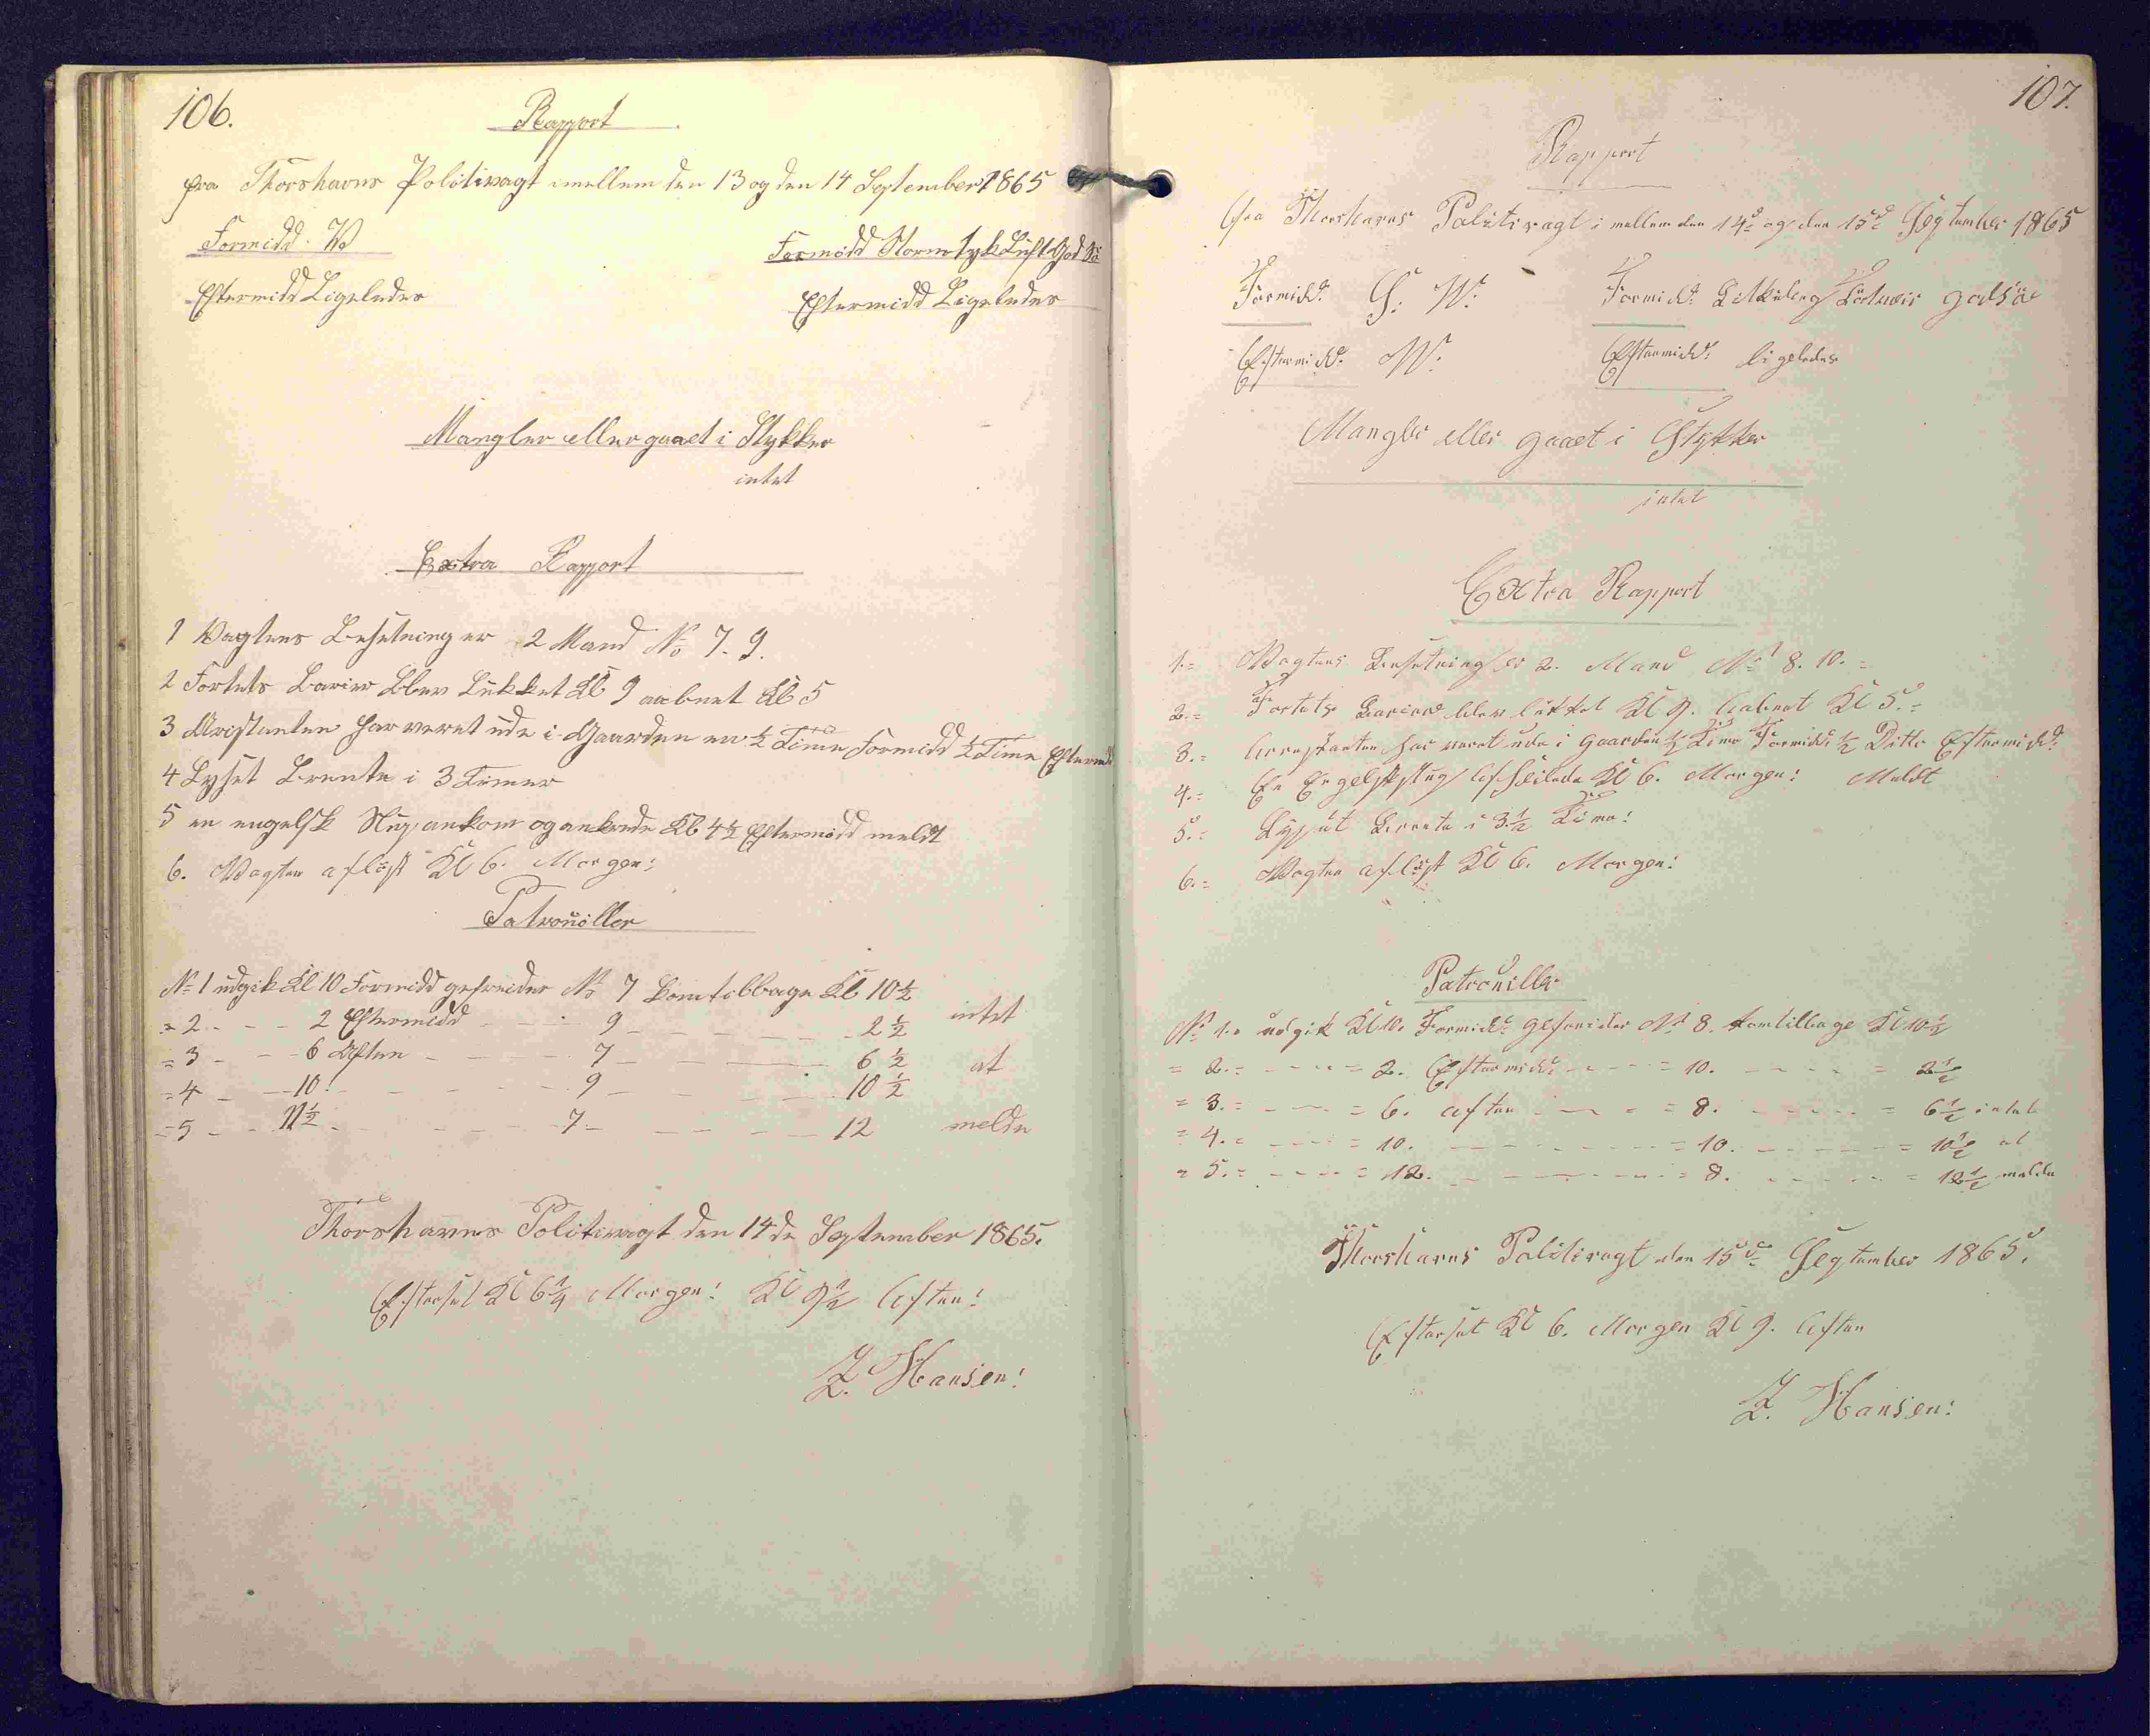 106.
Rapport
fra Thorshavns Politivagt imellem den 13 og den 14 September 1865
Formidd. W
Formidd Storm tyk Luft God Sö
Eftermidd Ligeledes
Eftermidd Ligeledes
Mangler eller gaaet i Stykker
intet
Extra Rapport
1 Vagtens Besetning er 2 Mand No 7. 9.
2 Fortets Barier blev Lukket Kl 9 aabnet Kl 5
3 Aristanten har veret ude i Gaarden en ½ Time Formidd ½ Time Efterm
4 Lyset Brente i 3 Timer
5 en engelsk Slup ankom og ankrede Kl 4½ Eftermidd meldt
6. Vagten aflöst Kl 6. Morgen:
Patrouiller
No 1 udgik Kl 10 Formidd gefreider No 7 kom tilbage Kl 10½
= 2 - - - 2 Eftermidd - - - 9 - - - 2½ intet
= 3 - - - 6 Aften - - - 7 - - - 6½
= 4 - - 10 - - - 9 - - - 10½ at
= 5 - - 11½ - - - 7 - - - 12 melde
Thorshavns Politivagt den 14de September 1865.
Efterset Kl 6¼ Morgen! Kl 9½ Aften!
Z. Hansen!
107.
Rapport
fra Thorshavns Politivagt i mellem den 14d og den 15d September 1865
Formidd. S. W.
Formidd. Luft god sö
Eftermidd. W.
Eftermidd. ligeledes
Mangler eller gaaet i Stykker
intet
Extra Rapport
1.= Vagtens Besetning er 2. Mand No 8. 10.=
2.= Fortets Bariere blev lukket Kl 9. Aabnet Kl 5.=
3.= Arrestanten har veret ude i gaarden ½ Time Formidd. ½ Ditto Eftermidd.
4.= En Engelsk slup Afseilede Kl 6. Morgen! Meldt
5.= Lysset Brente i 3½ Time!
6.= Vagten aflöst Kl 6. Morgen!
Patrouiller
No 1.= udgik Kl 10. Formidd. gefreider No 8. kom tilbage Kl 10½
= 2.= - - - = 2. Eftermidd. - - - = 10. - - - = 2½
= 3.= - - - = 6. Aften - - - = 8. - - - = 6½ intet
= 4.= - - - = 10. - - - = 10. - - - = 10½ at
= 5.= - - - = 12. - - - = 8. - - - = 12½ melde
Thorshavns Politivagt den 15de September 1865.
Efterset Kl 6. Morgen Kl 9. Aften
Z. Hansen: